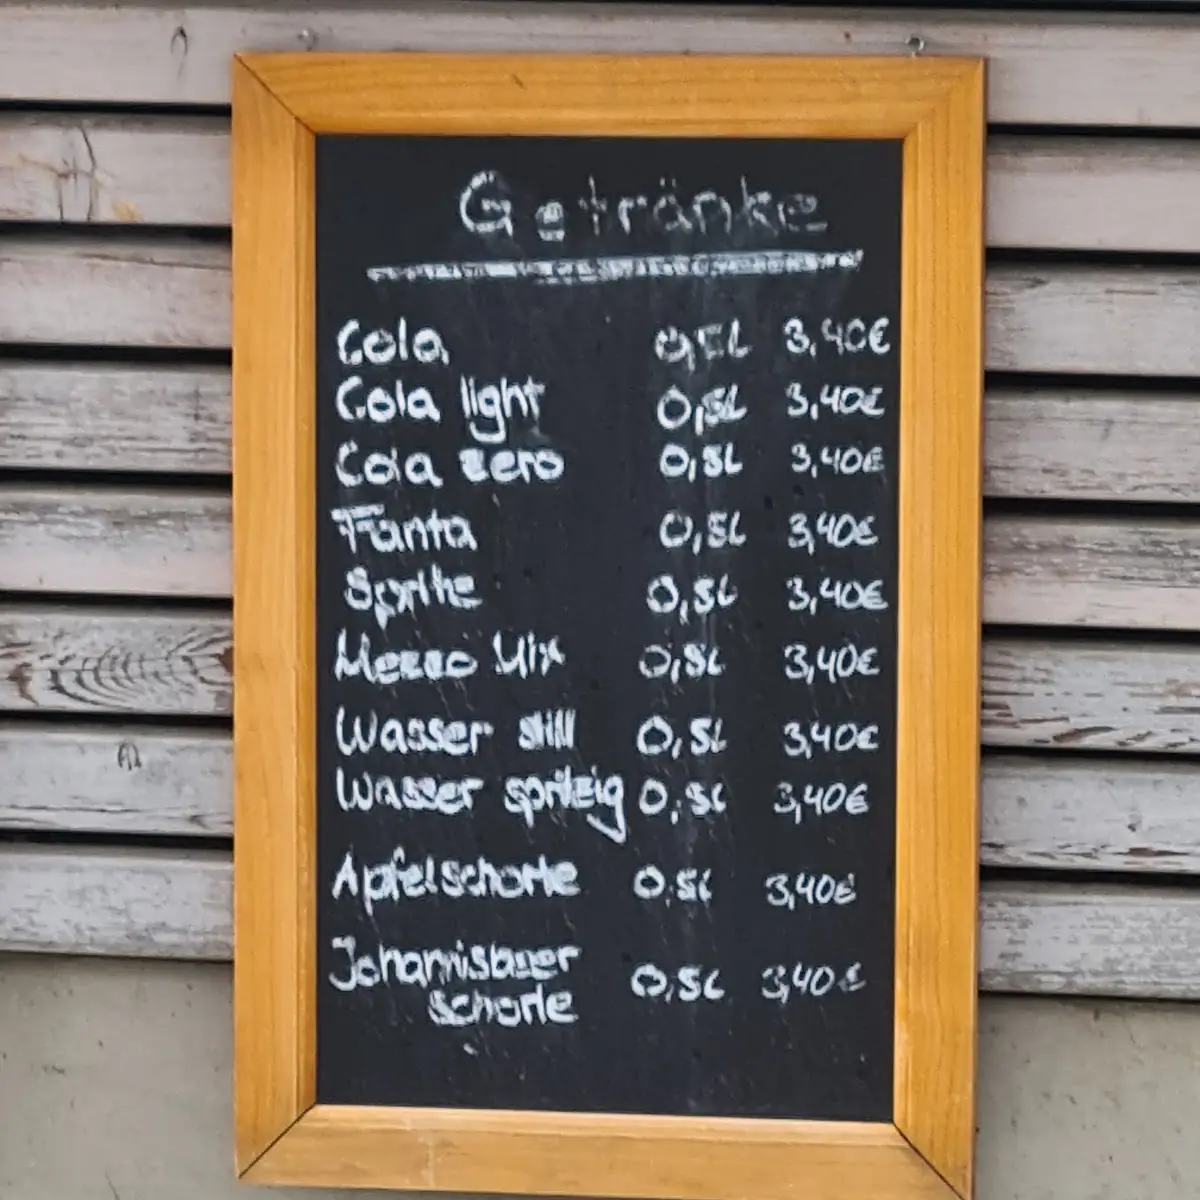 Getränke
Cola 0,5L 3,40€
Cola light 0,5L 3,40€
Cola zero 0,5L 3,40€
Fanta 0,5L 3,40€
Sprite 0,5L 3,40€
Mezzo Mix 0,5L 3,40€
Wasser still 0,5L 3,40€
Wasser spritzig 0,5L 3,40€
Apfelschorle 0,5L 3,40€
Johannisbeer
schorle 0,5L 3,40€